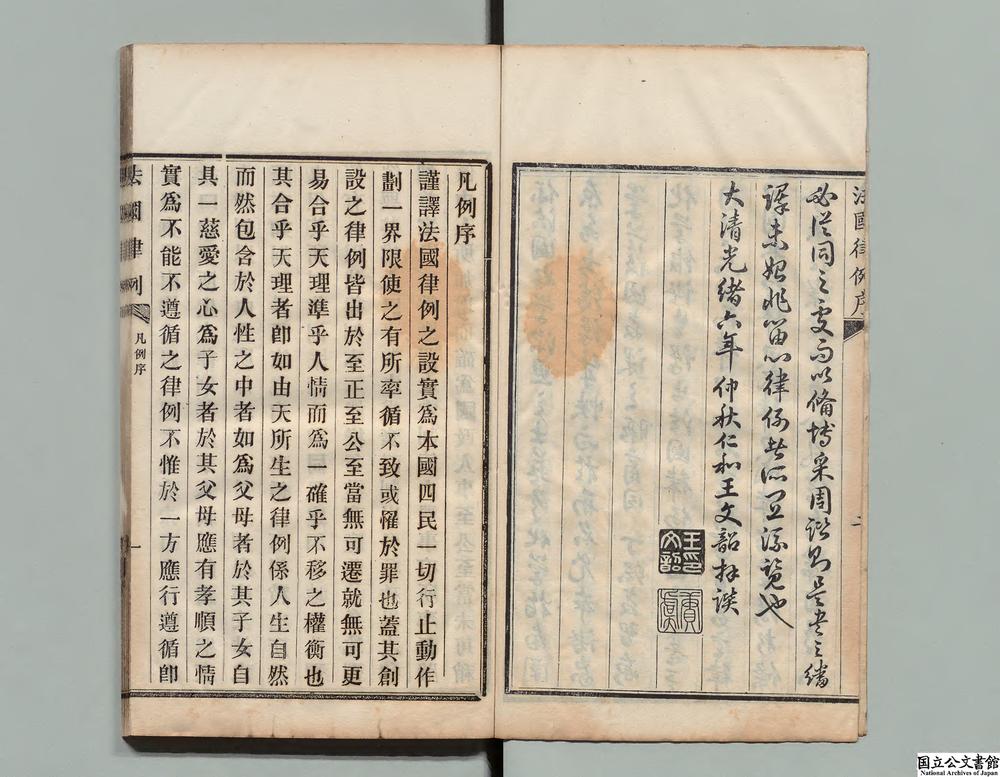 法國律例序
必從同之事而以備博采周諮則是書之繙
譯未始非留心律例者所宜流覽也
大清光緒六年仲秋仁和王文韶拜譔
二
王文韶印
凡例序
謹譯法國律例之設實爲本國四民一切行止動作
劃一界限使之有所率循不致或罹於罪也蓋其創
設之律例皆出於至正至公至當無可遷就無可更
易合乎天理準乎人情而爲一確乎不移之權衡也
其合乎天理者卽如由天所生之律例係人生自然
而然包含於人性之中者如爲父母者於其子女自
具一慈愛之心爲子女者於其父母應有孝順之情
實爲不能不遵循之律例不惟於一方應行遵循卽
法國律例
凡例序
一
国立公文書館
National Archives of Japan